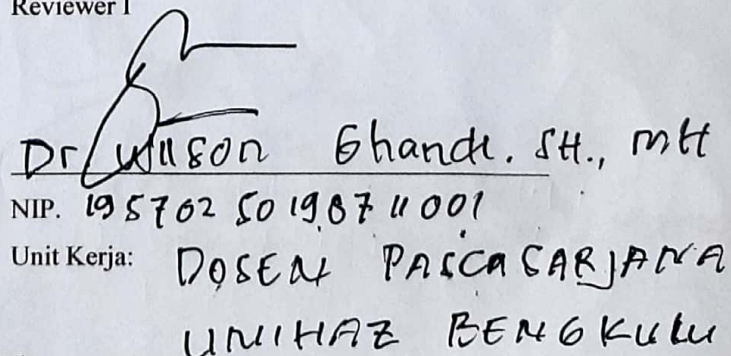 Reviewer I
Dr. Wilson Ghandi. SH., MH
NIP. 19570250198711001
Unit Kerja: DOSEN PASCASARJANA
UNIHAZ BENGKULU